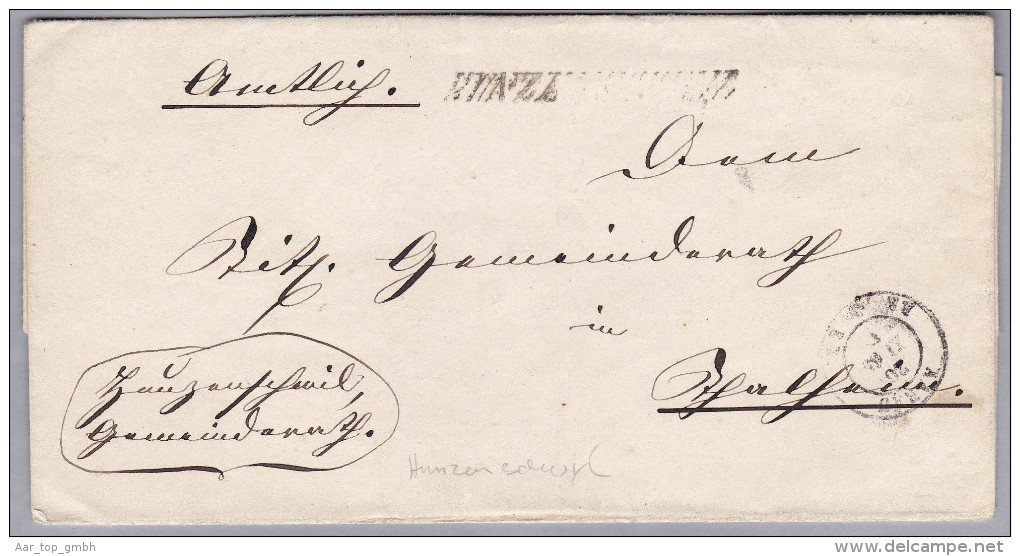 Amtlich.
Dem
Titl. Gemeinderath
in
Thalheim.
Hunzenschwil,
Gemeinderath.
Hunzenschwil
Aar_top_gmbh
www.delcampe.net